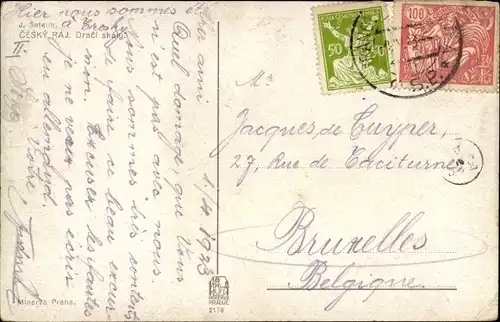 Hier nous sommes
à Trosky
J. Šetelík.
ČESKÝ RÁJ. Dračí skála.
1./4 1923
Cher ami
Quel dommage, que Vous
n'est pas avec nous.
Nous sommes très contents
de faire ce beau excur-
sion. Excuser les fautes
je ne veux pas écrire
en allemand.
Votre
Mr
Jacques de Cuyper,
27, Rue de Taciturne,
Bruxelles
Belgique
50
100
Minerva Praha.
MINERVA
PRAGUE
2179